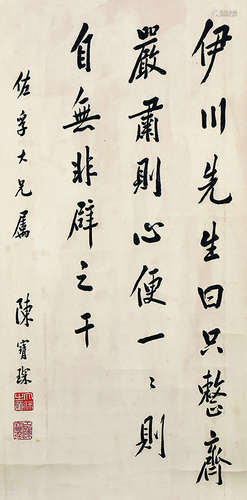 伊川先生曰只整齊
嚴肅則心便一々則
自無非辟之干
佐孚大兄屬
陳寶琛